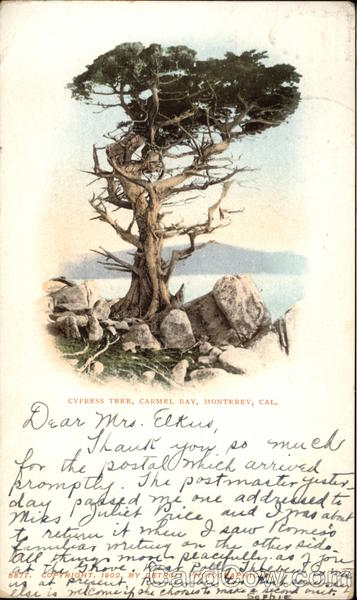 CYPRESS TREE, CARMEL BAY, MONTEREY, CAL.
Dear Mrs. Elkus,
Thank you so much
for the postal which arrived
promptly. The postmaster yester-
day passed me one addressed to
Miss Juliet Price and I was about
to return it when I saw
familiar writing on the other side.
All things move peacefully as
at the Grove. Post
at present
else is welcome if she chooses to make a second visit.
Sophie
5877. COPYRIGHT, 1902, BY DETROIT PHOTOGRAPHIC
CardCow.com